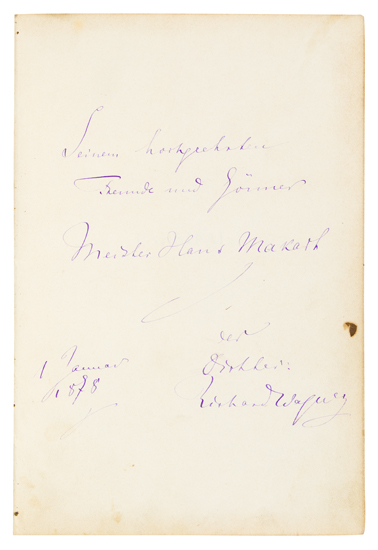 Seinem hochgeehrten
Freunde und Gönner
Meister Hans Makart
der
Dichter:
Richard Wagner
1 Januar
1878